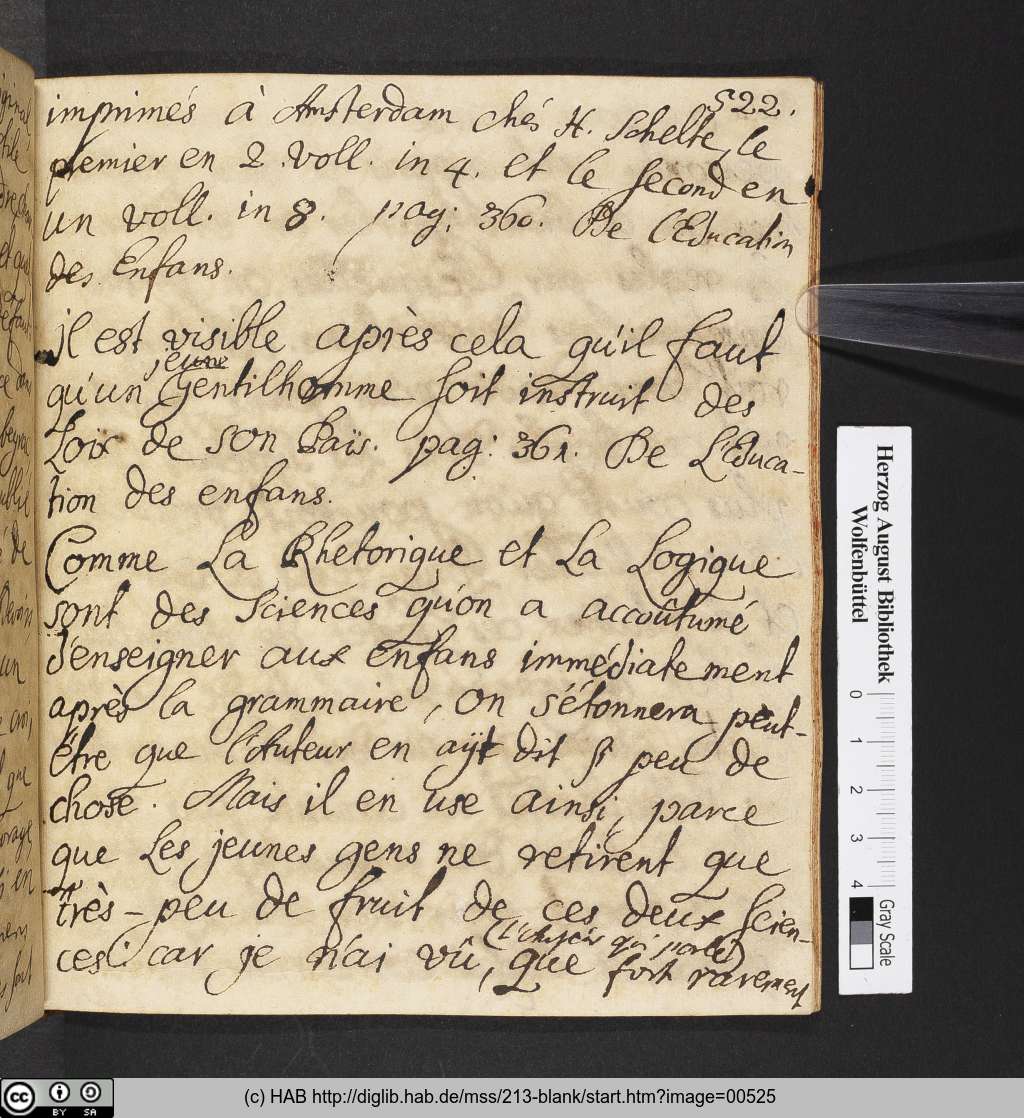 522.
imprimés à Amsterdam chés H. Schelte, le
premier en 2. voll. in 4. et le second en
un voll. in 8. pag: 360. De l'Education
des Enfans.
il est visible après cela qu'il faut
jeune
qu'un Gentilhomme soit instruit des
Loix de son Païs. pag: 361. De L'Educa-
tion des enfans.
Comme La Rhetorique et La Logique
sont des Sciences qu'on a accoûtumé
d'enseigner aux enfans immédiatement
après la grammaire, on s'étonnera peut-
être que l'Auteur en aÿt dit si peu de
chose. Mais il en use ainsi, parce
que Les jeunes gens ne retirent que
très-peu de fruit de ces deux Scien-
(l'Auteur qui parle)
ces: car je n'ai vû, que fort rarement
Herzog August Bibliothek
Wolfenbüttel
0 1 2 3 4
Gray Scale
cc BY SA
(c) HAB http://diglib.hab.de/mss/213-blank/start.htm?image=00525